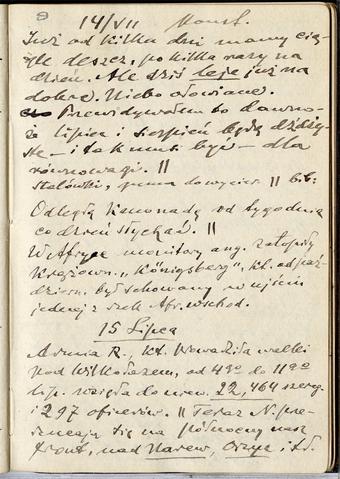 14/VII Konst.
Już od kilku dni mamy cią-
gle deszcz, po kilka razy na
dzień. Ale dziś leje już na
dobre. Niebo ołowiane.
Przewidywałem to dawno,
że lipiec i sierpień będą dżdży-
ste – i tak musi być – dla
równowagi. ||
Stalówki, guma do wycier. || bib:
Odległą kanonadę od tygodnia
co dzień słychać. ||
W Afryce monitory ang. zatopiły
krążown. „Königsberg", kt. od paź-
dziern. był schowany w ujściu
jednej z rzek Afr. wschod.
15 Lipca
Armia R., kt. prowadziła walki
pod Wilkołazem, od 4go do 11go
lip. wzięła do niew. 22,464 szereg.
i 297 oficerów. || Teraz N. prze-
rzucają się na północny nasz
front, nad Narew, Orzyc i t.d.